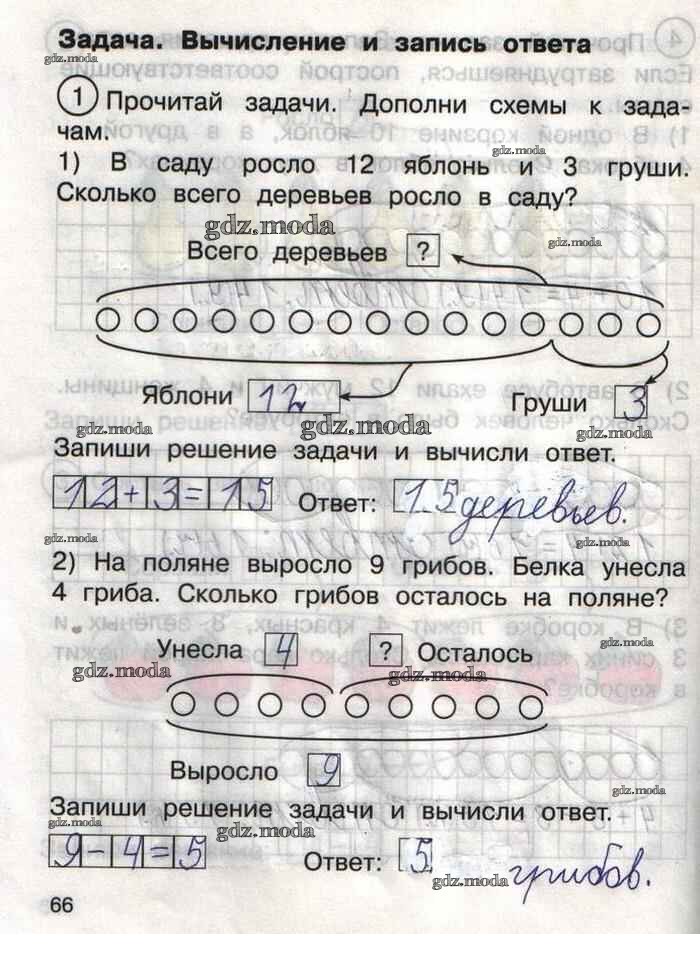 Задача. Вычисление и запись ответа
1 Прочитай задачи. Дополни схемы к зада-
чам.
gdz.moda
gdz.moda
1) В саду росло 12 яблонь и 3 груши.
Сколько всего деревьев росло в саду?
gdz.moda
Всего деревьев ?
gdz.moda
Яблони 12
Груши 3
gdz.moda
gdz.moda
gdz.moda
Запиши решение задачи и вычисли ответ.
12+3=15 Ответ: 15 деревьев.
gdz.moda
gdz.moda
gdz.moda
2) На поляне выросло 9 грибов. Белка унесла
4 гриба. Сколько грибов осталось на поляне?
Унесла 4 ? Осталось
gdz.moda
gdz.moda
gdz.moda
Выросло 9
gdz.moda
Запиши решение задачи и вычисли ответ.
gdz.moda
gdz.moda
gdz.moda
9-4=5 Ответ: 5 грибов.
gdz.moda
66